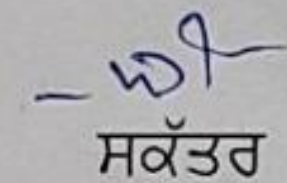 ਸਕੱਤਰ